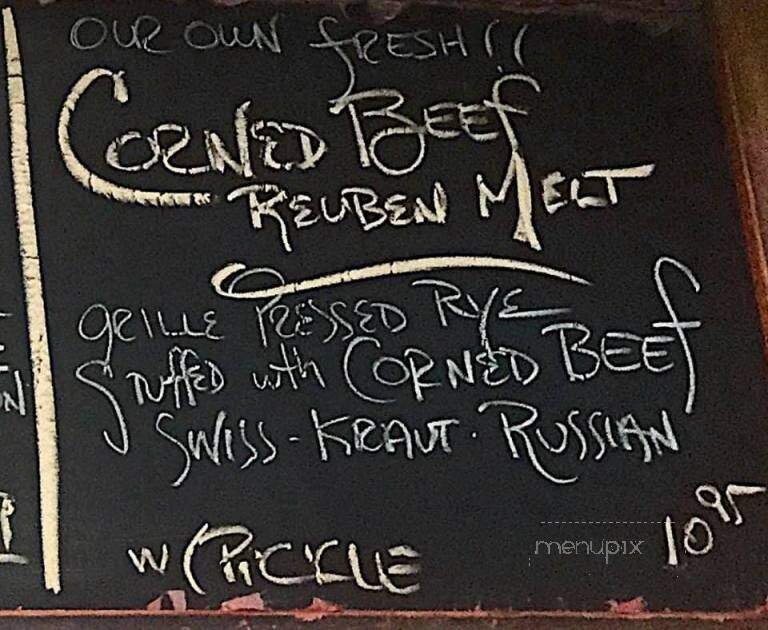 OUR OWN fRESH!!
CORNED BEEf
REUBEN MELT
GRILLE PRESSED RYE
STUFFED with CORNED BEEf
SWISS - KRAUT · RUSSIAN
w/ PICKLE
10 95
menupix